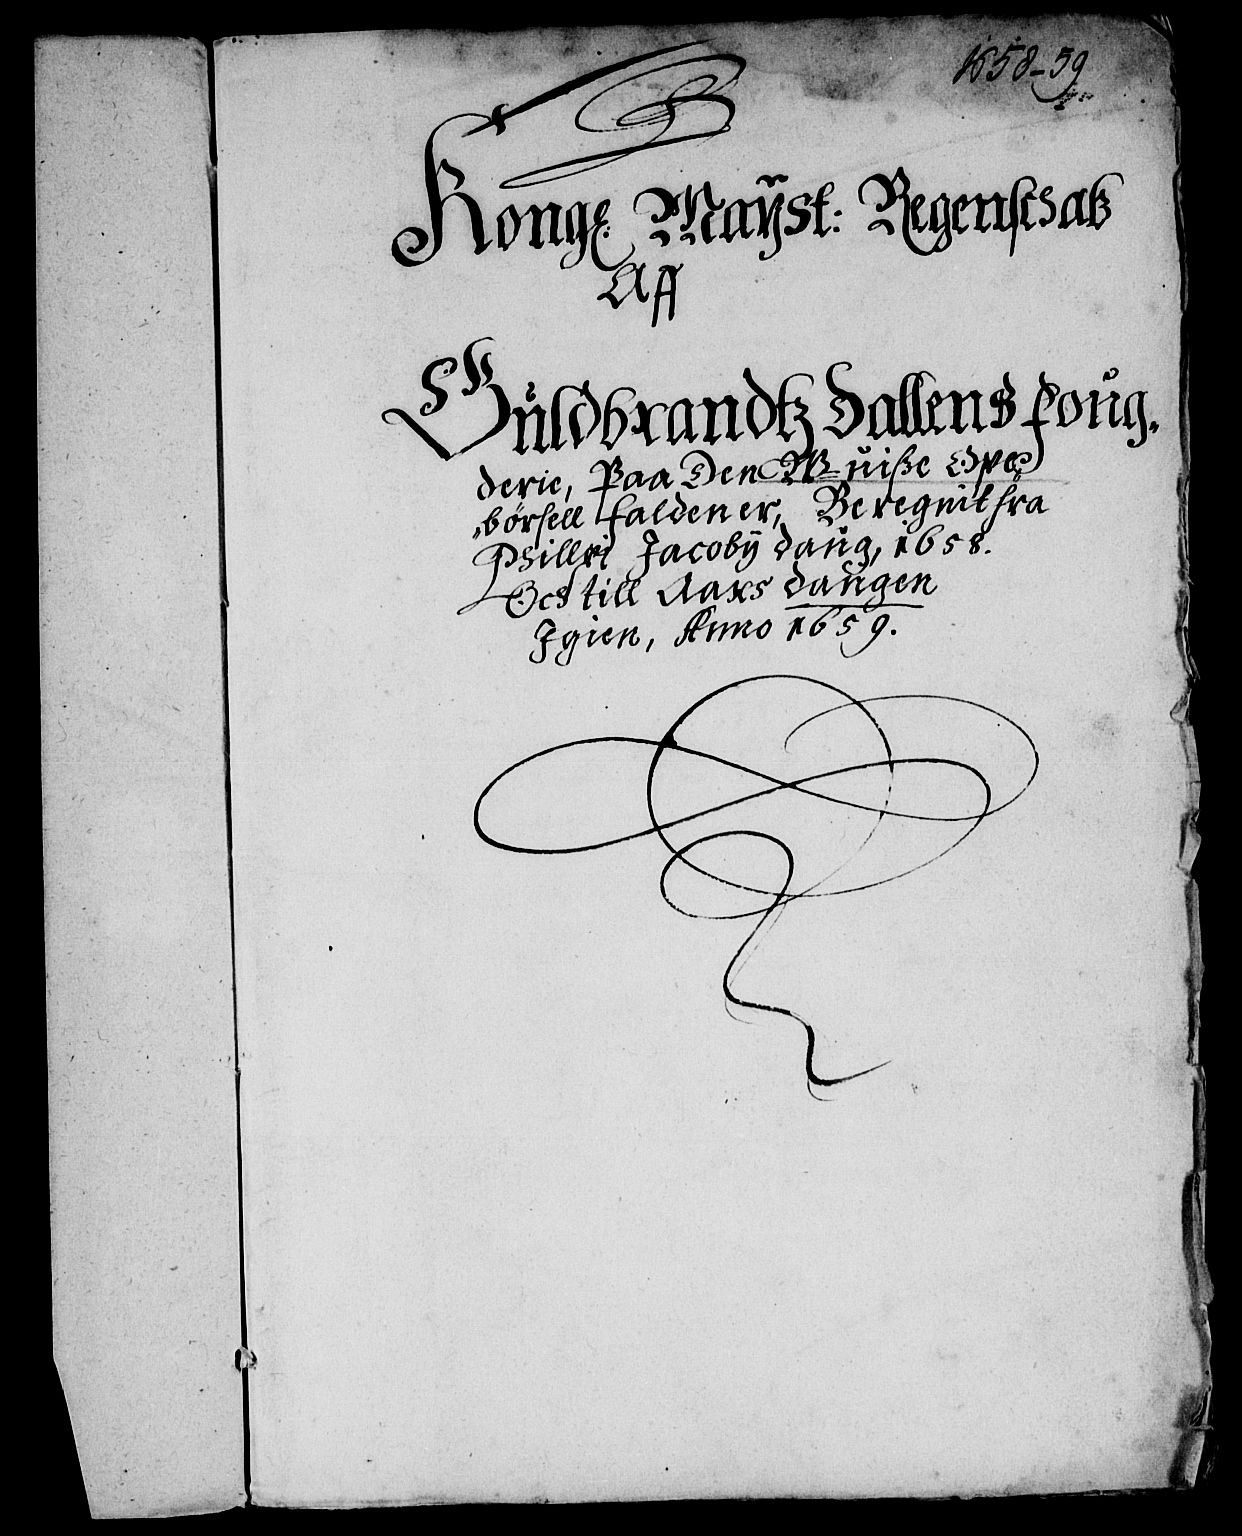 1658-59
Kong: Mayst: Regenschab
Aff
Guldbrandtz Dallens foug,
derie, Paa Den Wuiße Ope
„börsell falden er, Beregnit fra
Philipi Jacobÿ daug, 1658.
Och till Aars daugen
Igien, Anno 1659.